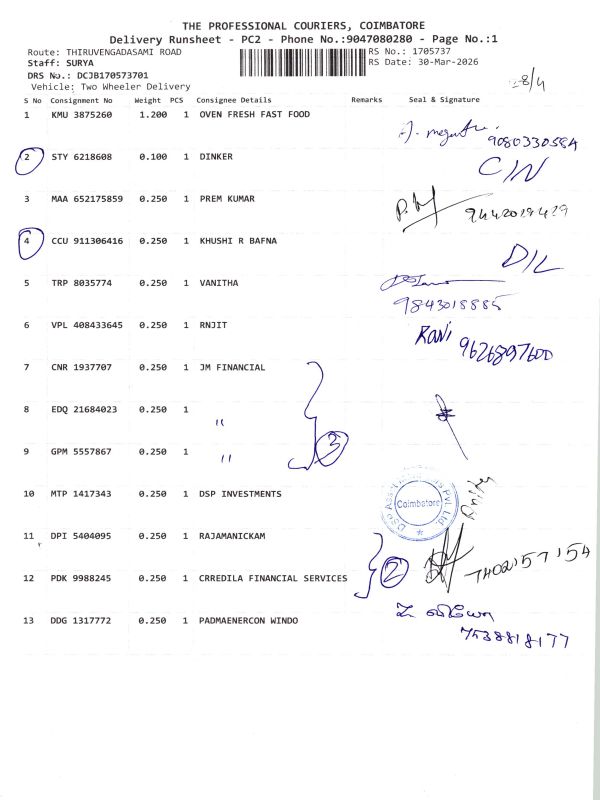 THE PROFESSIONAL COURIERS, COIMBATORE
Delivery Runsheet - PC2 - Phone No.:9047080280 - Page No.:1
Route: THIRUVENGADASAMI ROAD
RS No.: 1705737
Staff: SURYA
RS Date: 30-Mar-2026
DRS No.: DCJB170573701
Vehicle: Two Wheeler Delivery
8/4
S No Consignment No Weight PCS Consignee Details Remarks Seal & Signature
1 KMU 3875260 1.200 1 OVEN FRESH FAST FOOD
9080330584
2 STY 6218608 0.100 1 DINKER C/N
3 MAA 652175859 0.250 1 PREM KUMAR
9442019429
4 CCU 911306416 0.250 1 KHUSHI R BAFNA D/L
5 TRP 8035774 0.250 1 VANITHA
9843018885
6 VPL 408433645 0.250 1 RNJIT Rani 9626897600
7 CNR 1937707 0.250 1 JM FINANCIAL
8 EDQ 21684023 0.250 1 "
3
9 GPM 5557867 0.250 1 "
10 MTP 1417343 0.250 1 DSP INVESTMENTS Coimbatore
11 DPI 5404095 0.250 1 RAJAMANICKAM
2 7402157154
12 PDK 9988245 0.250 1 CRREDILA FINANCIAL SERVICES
13 DDG 1317772 0.250 1 PADMAENERCON WINDO
7538818177